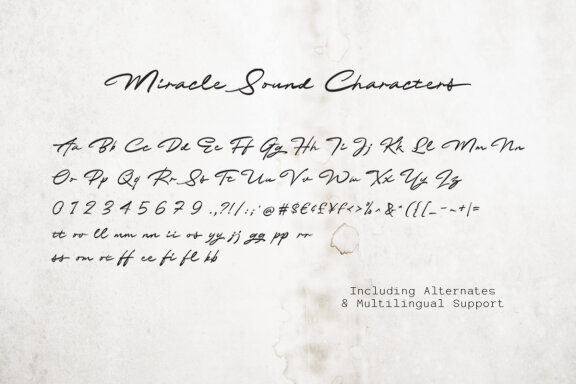 Miracle Sound Characters
Aa Bb Cc Dd Ee Ff Gg Hh Ii Jj Kk Ll Mm Nn
Oo Pp Qq Rr Ss Tt Uu Vv Ww Xx Yy Zz
0 1 2 3 4 5 6 7 8 9 .,?!/:;'@#$€¢£¥f<>%^&*({[_-~+|=
tt oo ll mm nn ii os yy jj gg pp rr
ss om ot ff ee fi fl bb
Including Alternates
& Multilingual Support